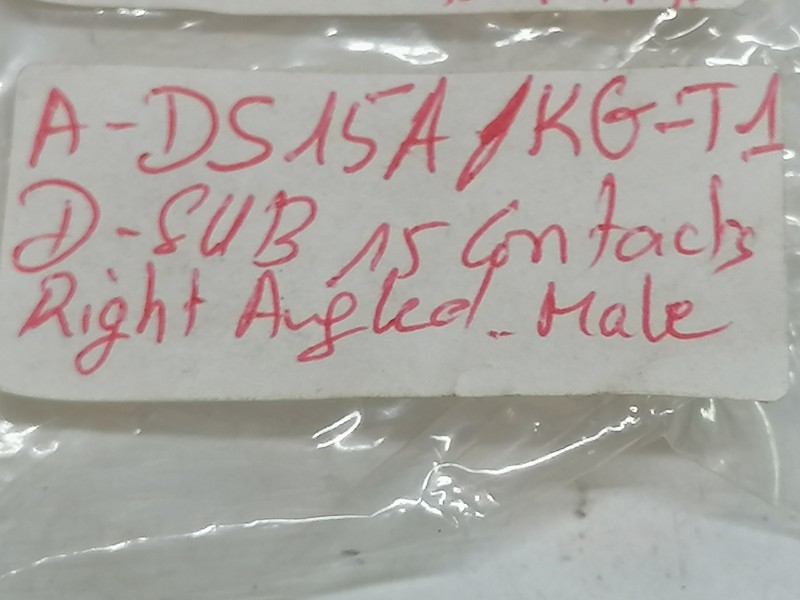 A-DS15A/KG-T1
D-SUB 15 Contacts
Right Angled - Male